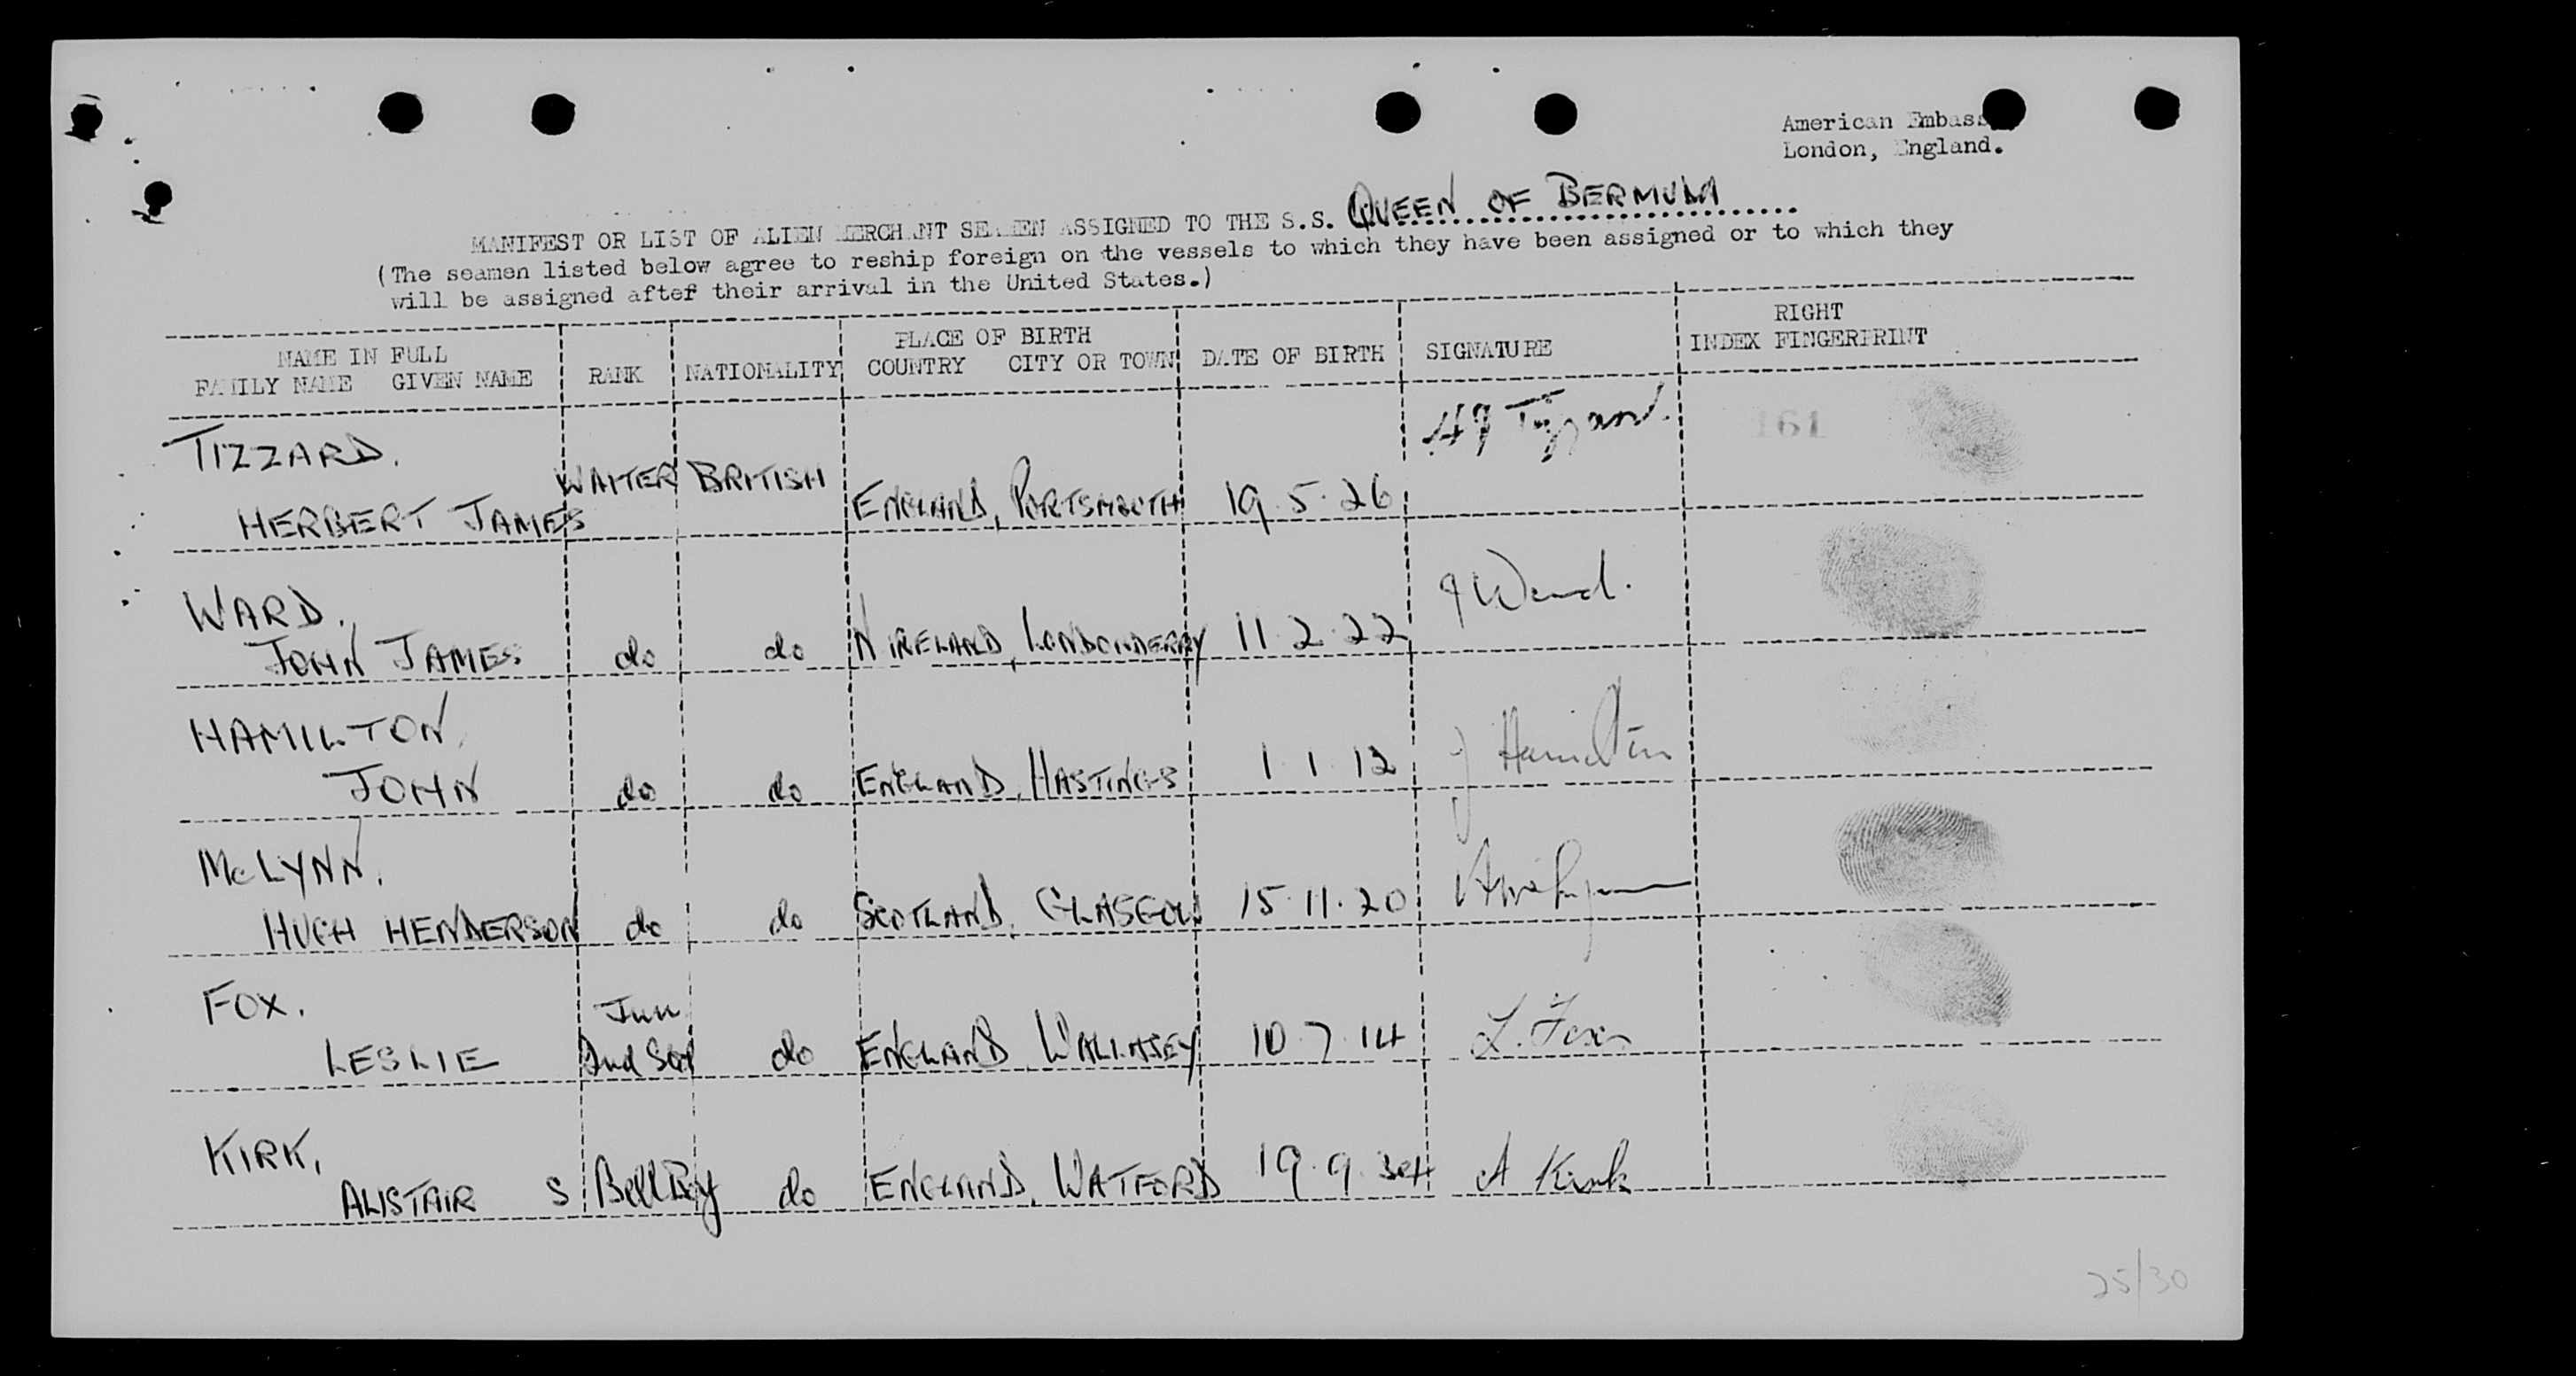 American Embass
London, England.
MANIFEST OR LIST OF ALIEN MERCHANT SEAMEN ASSIGNED TO THE S.S. QUEEN OF BERMUDA
(The seamen listed below agree to reship foreign on the vessels to which they have been assigned or to which they
will be assigned after their arrival in the United States.)
NAME IN FULL PLACE OF BIRTH RIGHT
FAMILY NAME GIVEN NAME RANK NATIONALITY COUNTRY CITY OR TOWN DATE OF BIRTH SIGNATURE INDEX FINGERPRINT
TIZZARD. HJ Tizzard. 161
HERBERT JAMES WAITER BRITISH ENGLAND, PORTSMOUTH 19.5.26
WARD. J Ward.
JOHN JAMES do do N IRELAND, LONDONDERRY 11.2.22
HAMILTON, J Hamilton
JOHN do do ENGLAND, HASTINGS 1.1.12
McLYNN,
HUGH HENDERSON do do SCOTLAND, GLASGOW 15.11.20
FOX. Jun
LESLIE do ENGLAND WALLASEY 10.7.14 L. Fox
KIRK,
ALISTAIR S Bell Boy do ENGLAND, WATFORD 19.9.34 A Kirk
25/30